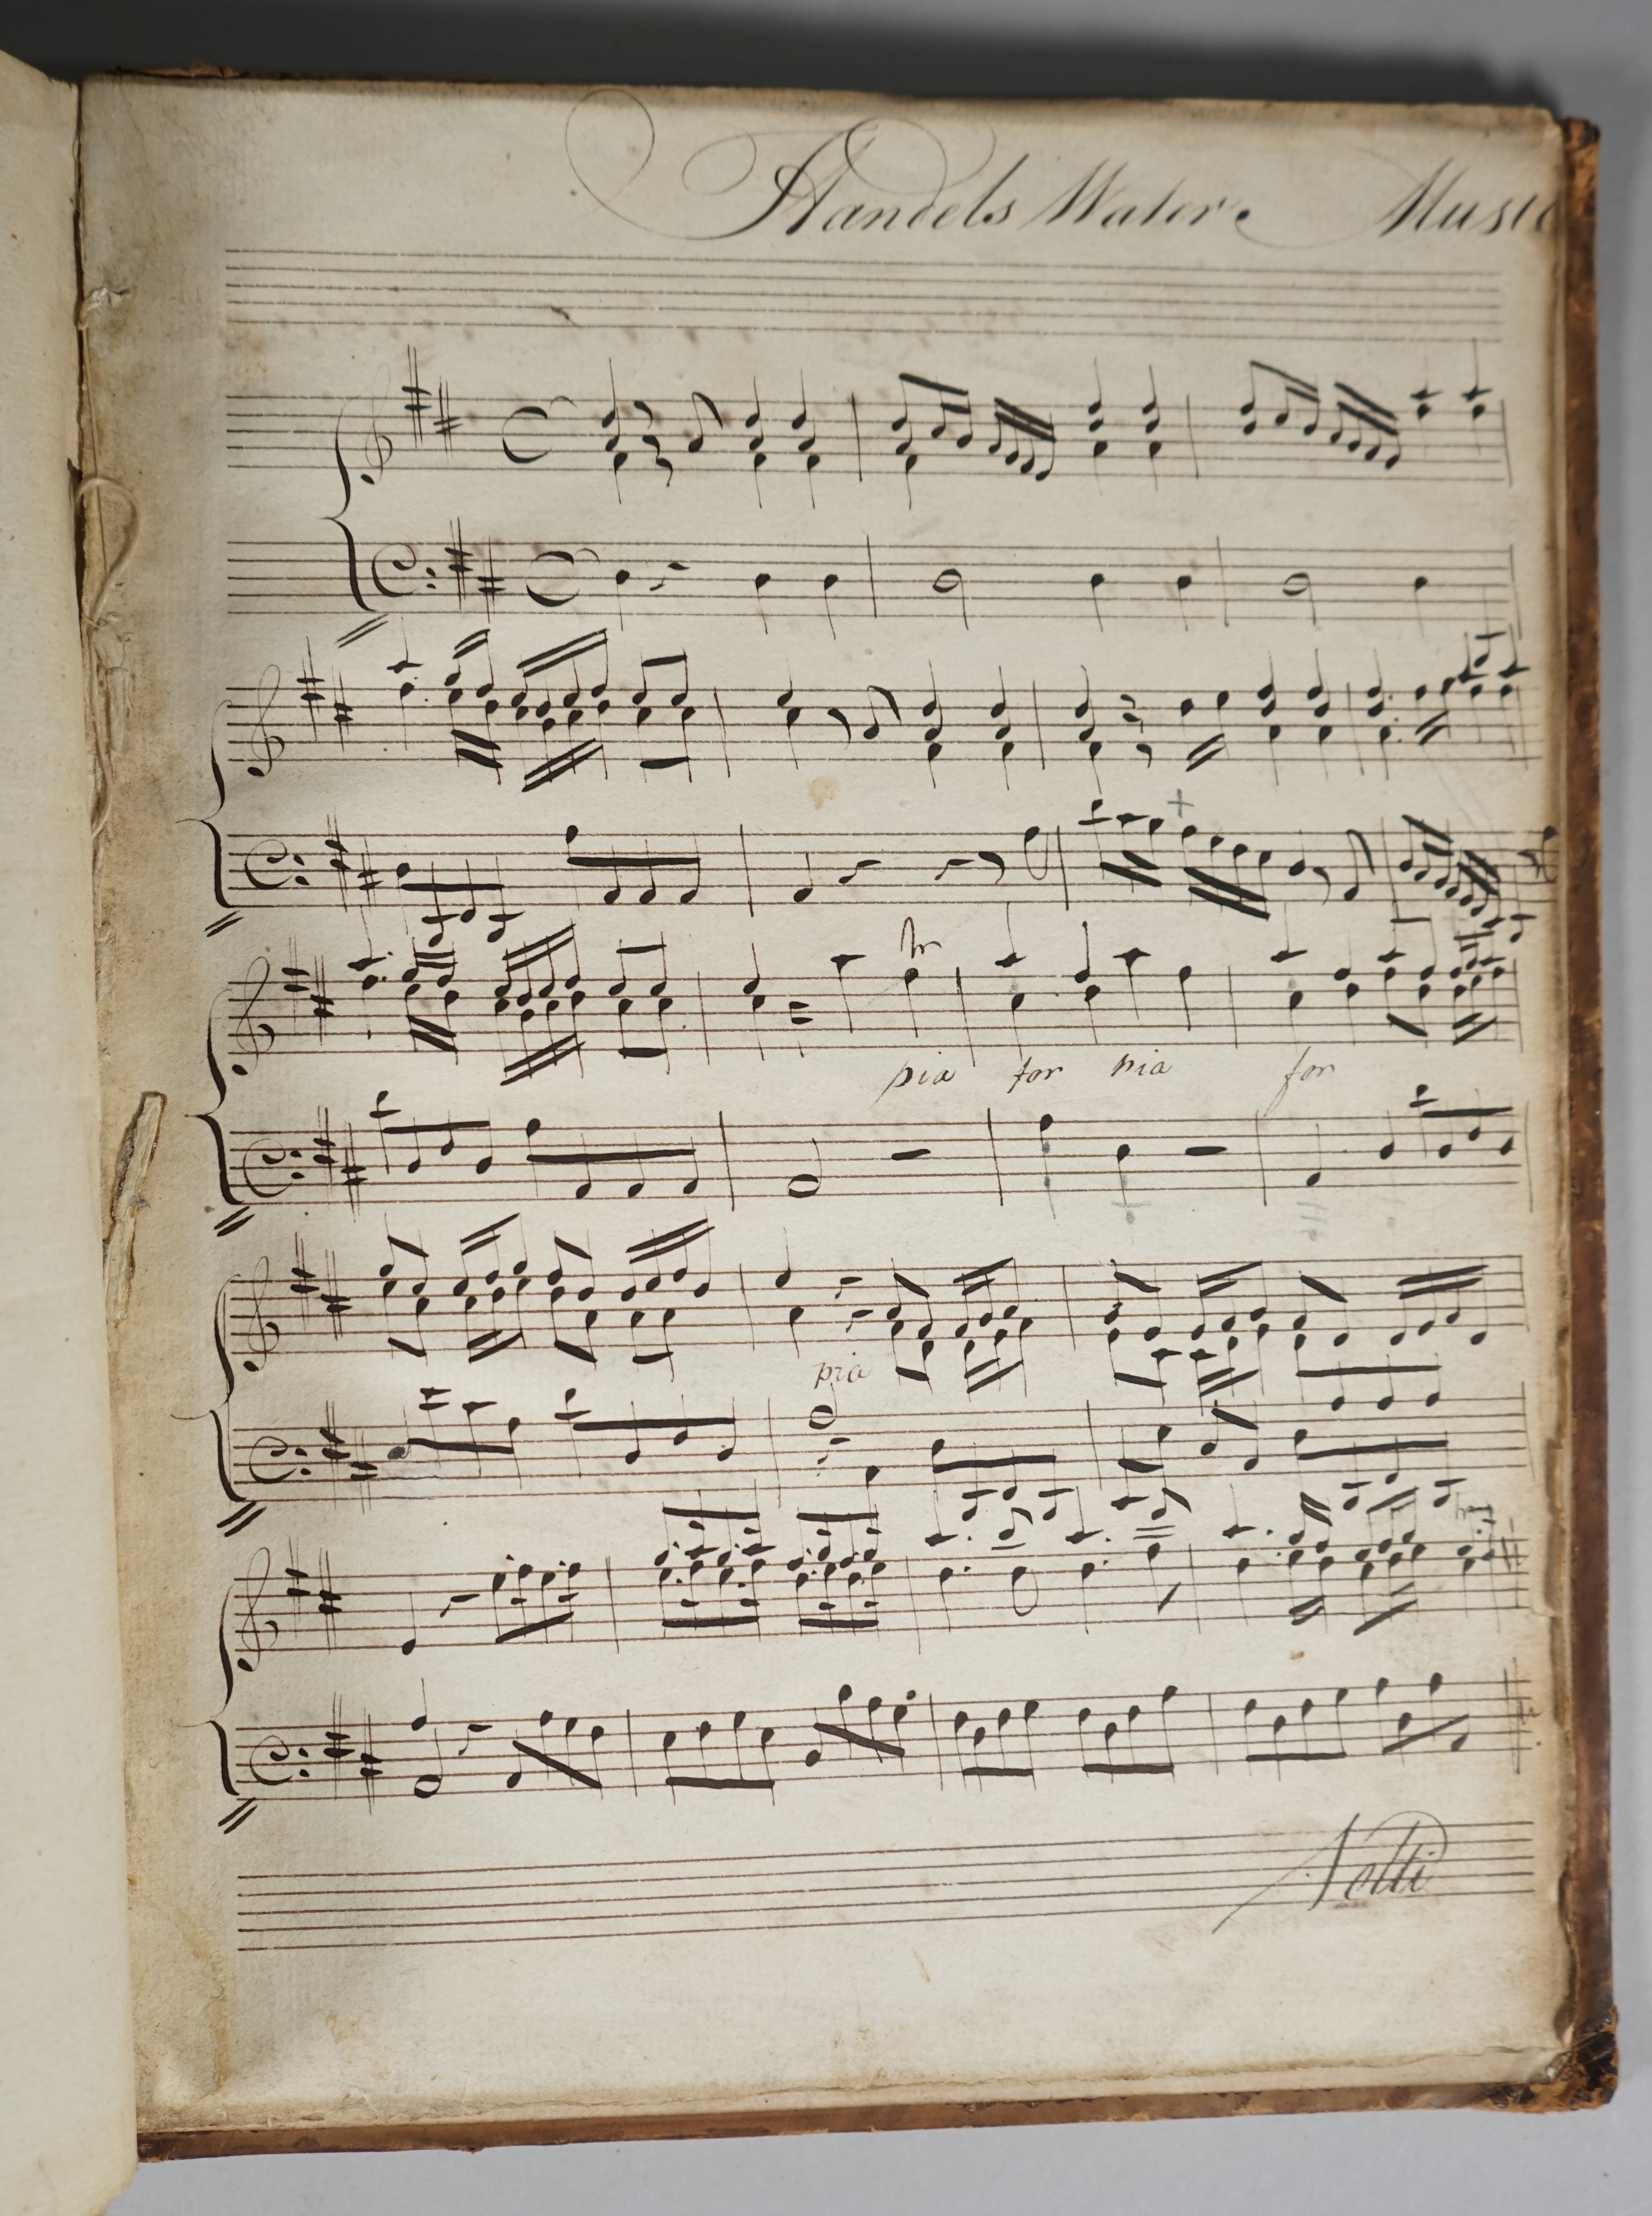 Handels Water Music
tr
pia for pia for
pia
Volti